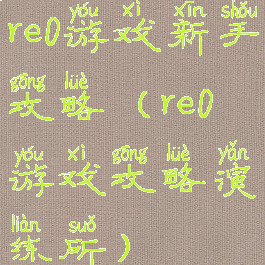 yóu xì xīn shǒu
re0游戏新手
gōng lüè
攻略（re0
yóu xì gōng lüè yǎn
游戏攻略演
liàn suǒ
练所）